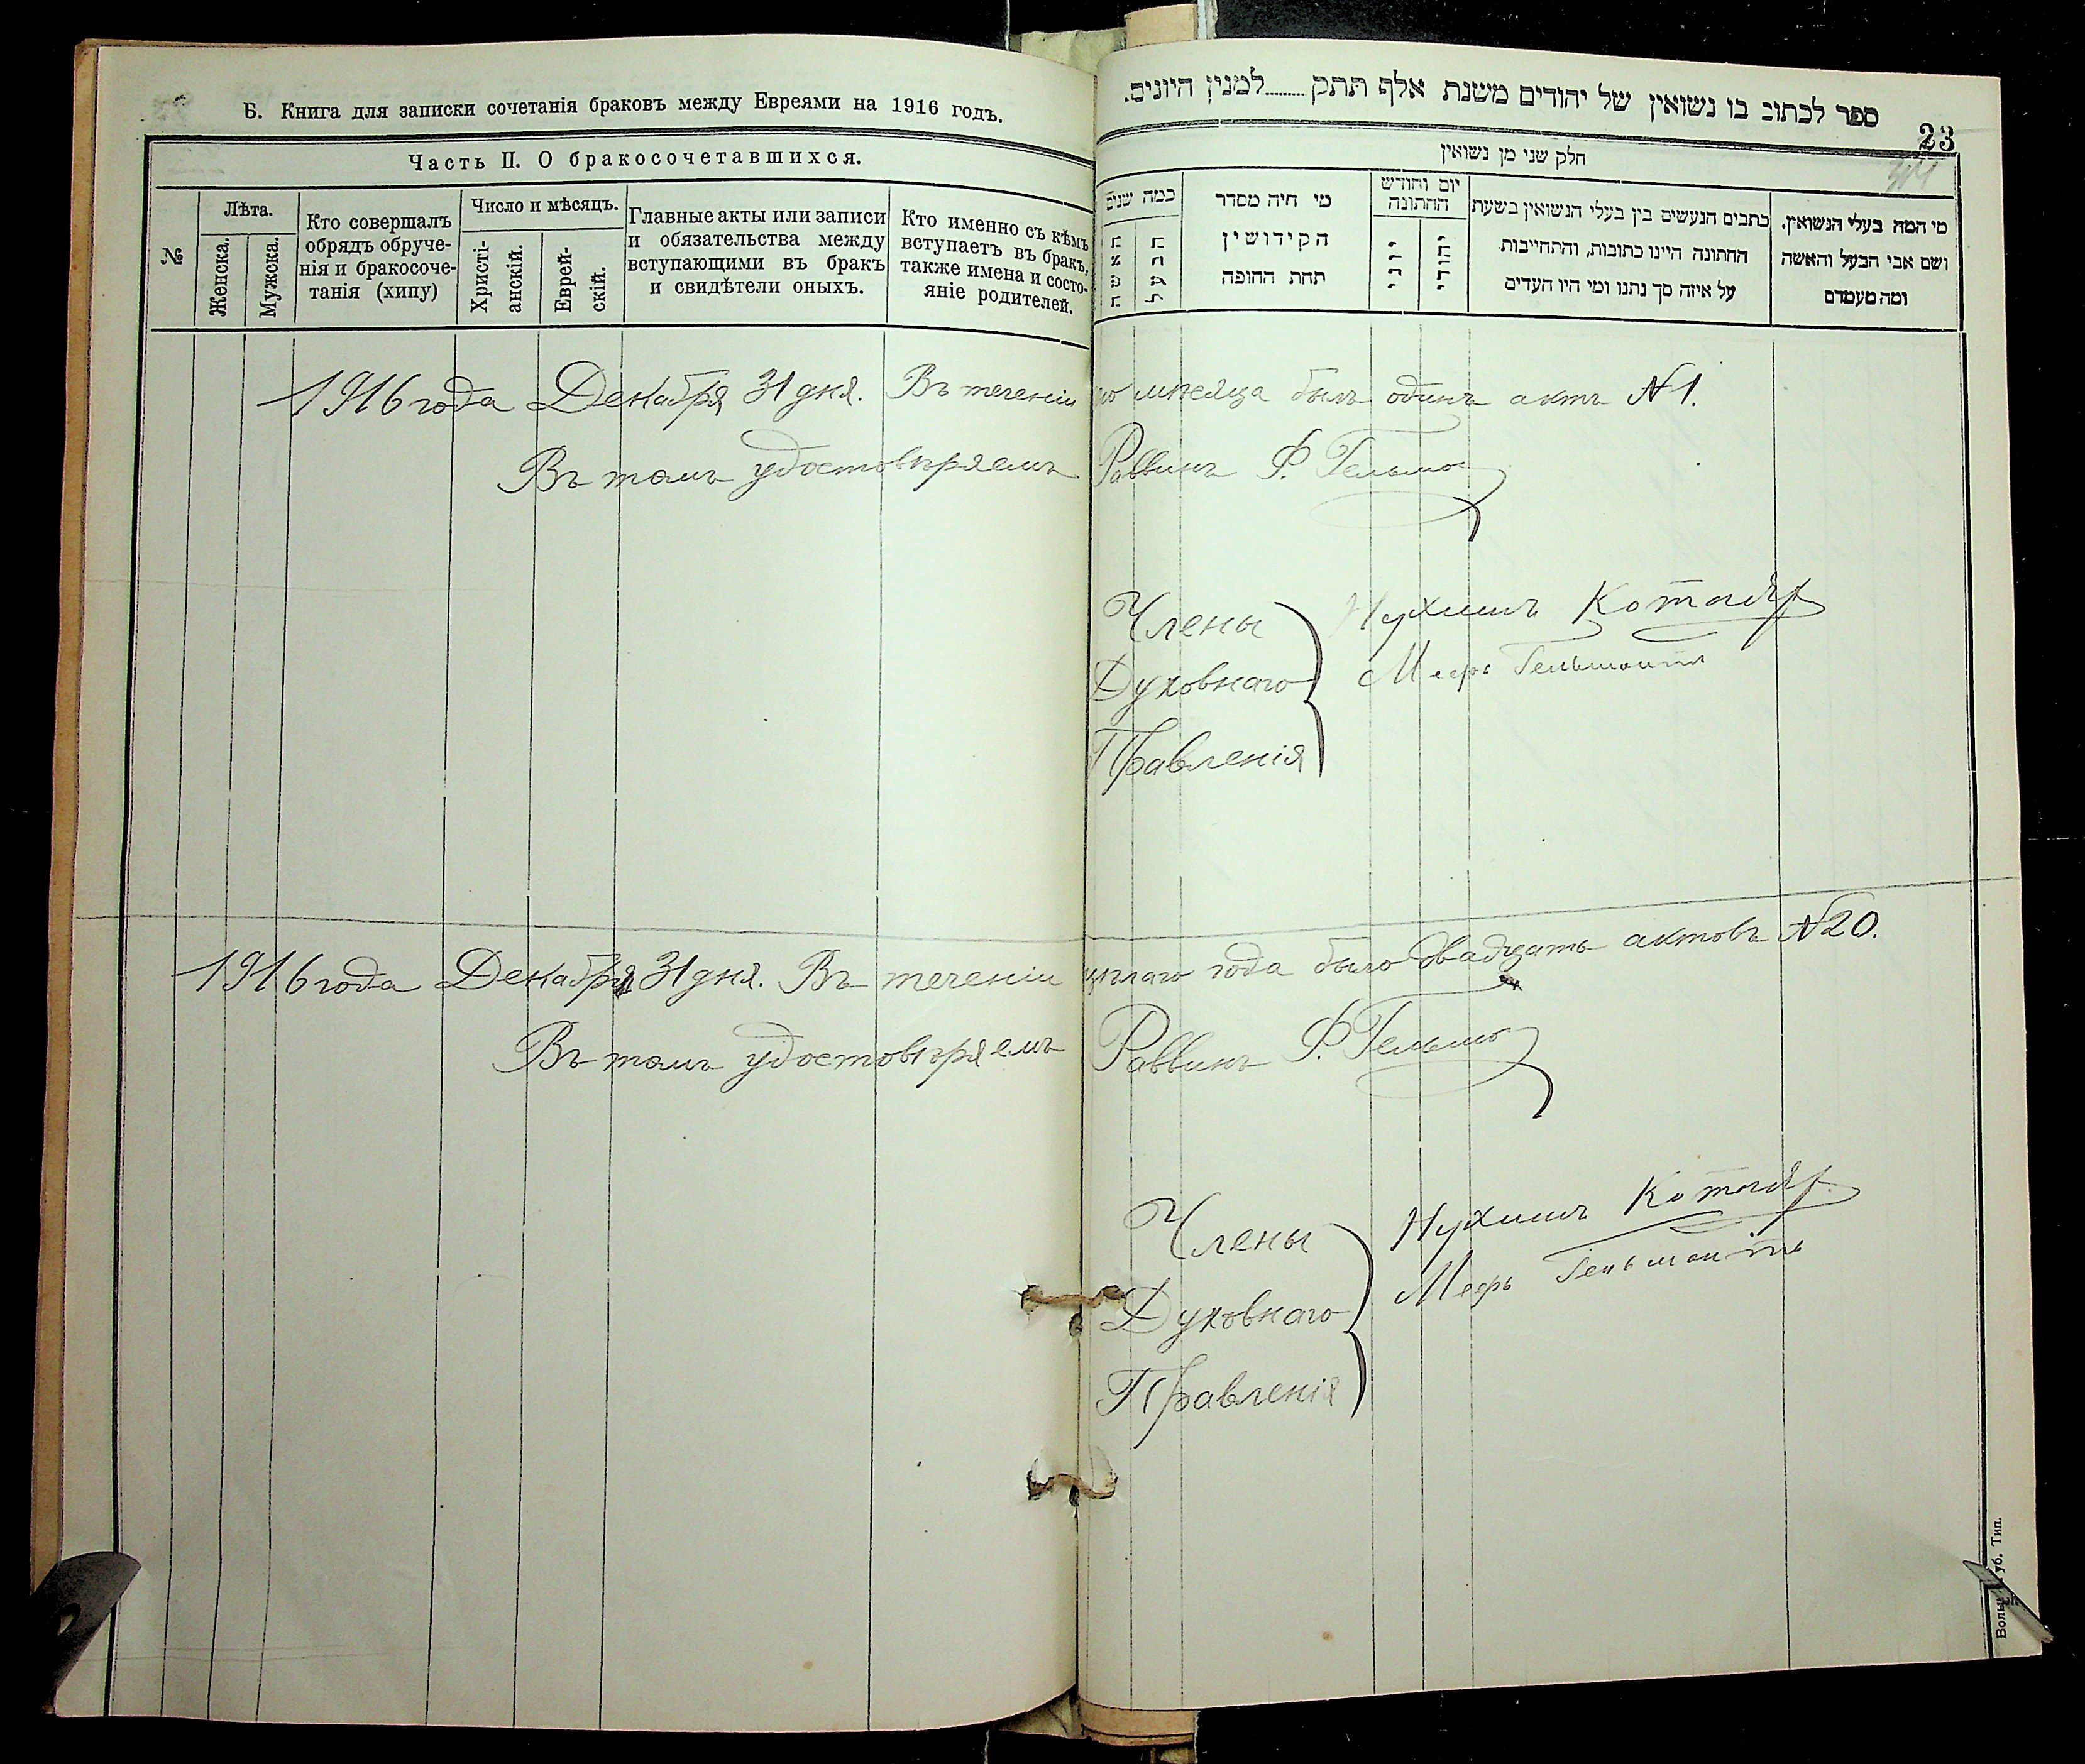 Б. Книга для записки сочетанія браковъ между Евреями на 1916 годъ.
Часть II. О бракосочетавшихся.
№
Лѣта.
Женска.
Мужска.
Кто совершалъ
обрядъ обруче-
нія и бракосоче-
танія (хипу)
Число и мѣсяцъ.
Христі-
анскій.
Еврей-
скій.
Главные акты или записи
и обязательства между
вступающими въ бракъ
и свидѣтели оныхъ.
Кто именно съ кѣмъ
вступаетъ въ бракъ,
также имена и состо-
яніе родителей.
ספר לכתוב בו נשואין של יהודים משנת אלף תתק........למנין היונים.
23
חלק שני מן נשואין
מי המה בעלי הנשואין.
ושם אבי הבעל והאשה
ומה מעמדם
כתבים הנעשים בין בעלי הנשואין בשעת
החתונה היינו כתובות, והתחייבות
על איזה סך נתנו ומי היו העדים
יום וחודש
החתונה
יהודי
יוני
מי היה מסדר
הקידושין
תחת החופה
כמה שנים
הבעל
האשה
1916 года Декабря 31 дня. Въ теченіи го мѣсяца былъ одинъ актъ №1.
Въ томъ удостовѣряемъ Раввинъ Ф.
Члены
Духовнаго
Правленія
Нухимъ Котляр
Мееръ
1916 года Декабря 31 дня. Въ теченіи цѣлаго года было двадцать актовъ №20.
Въ томъ удостовѣряемъ Раввинъ Ф.
Члены
Духовнаго
Правленія
Нухимъ Котляр
Мееръ
Волын. Губ. Тип.